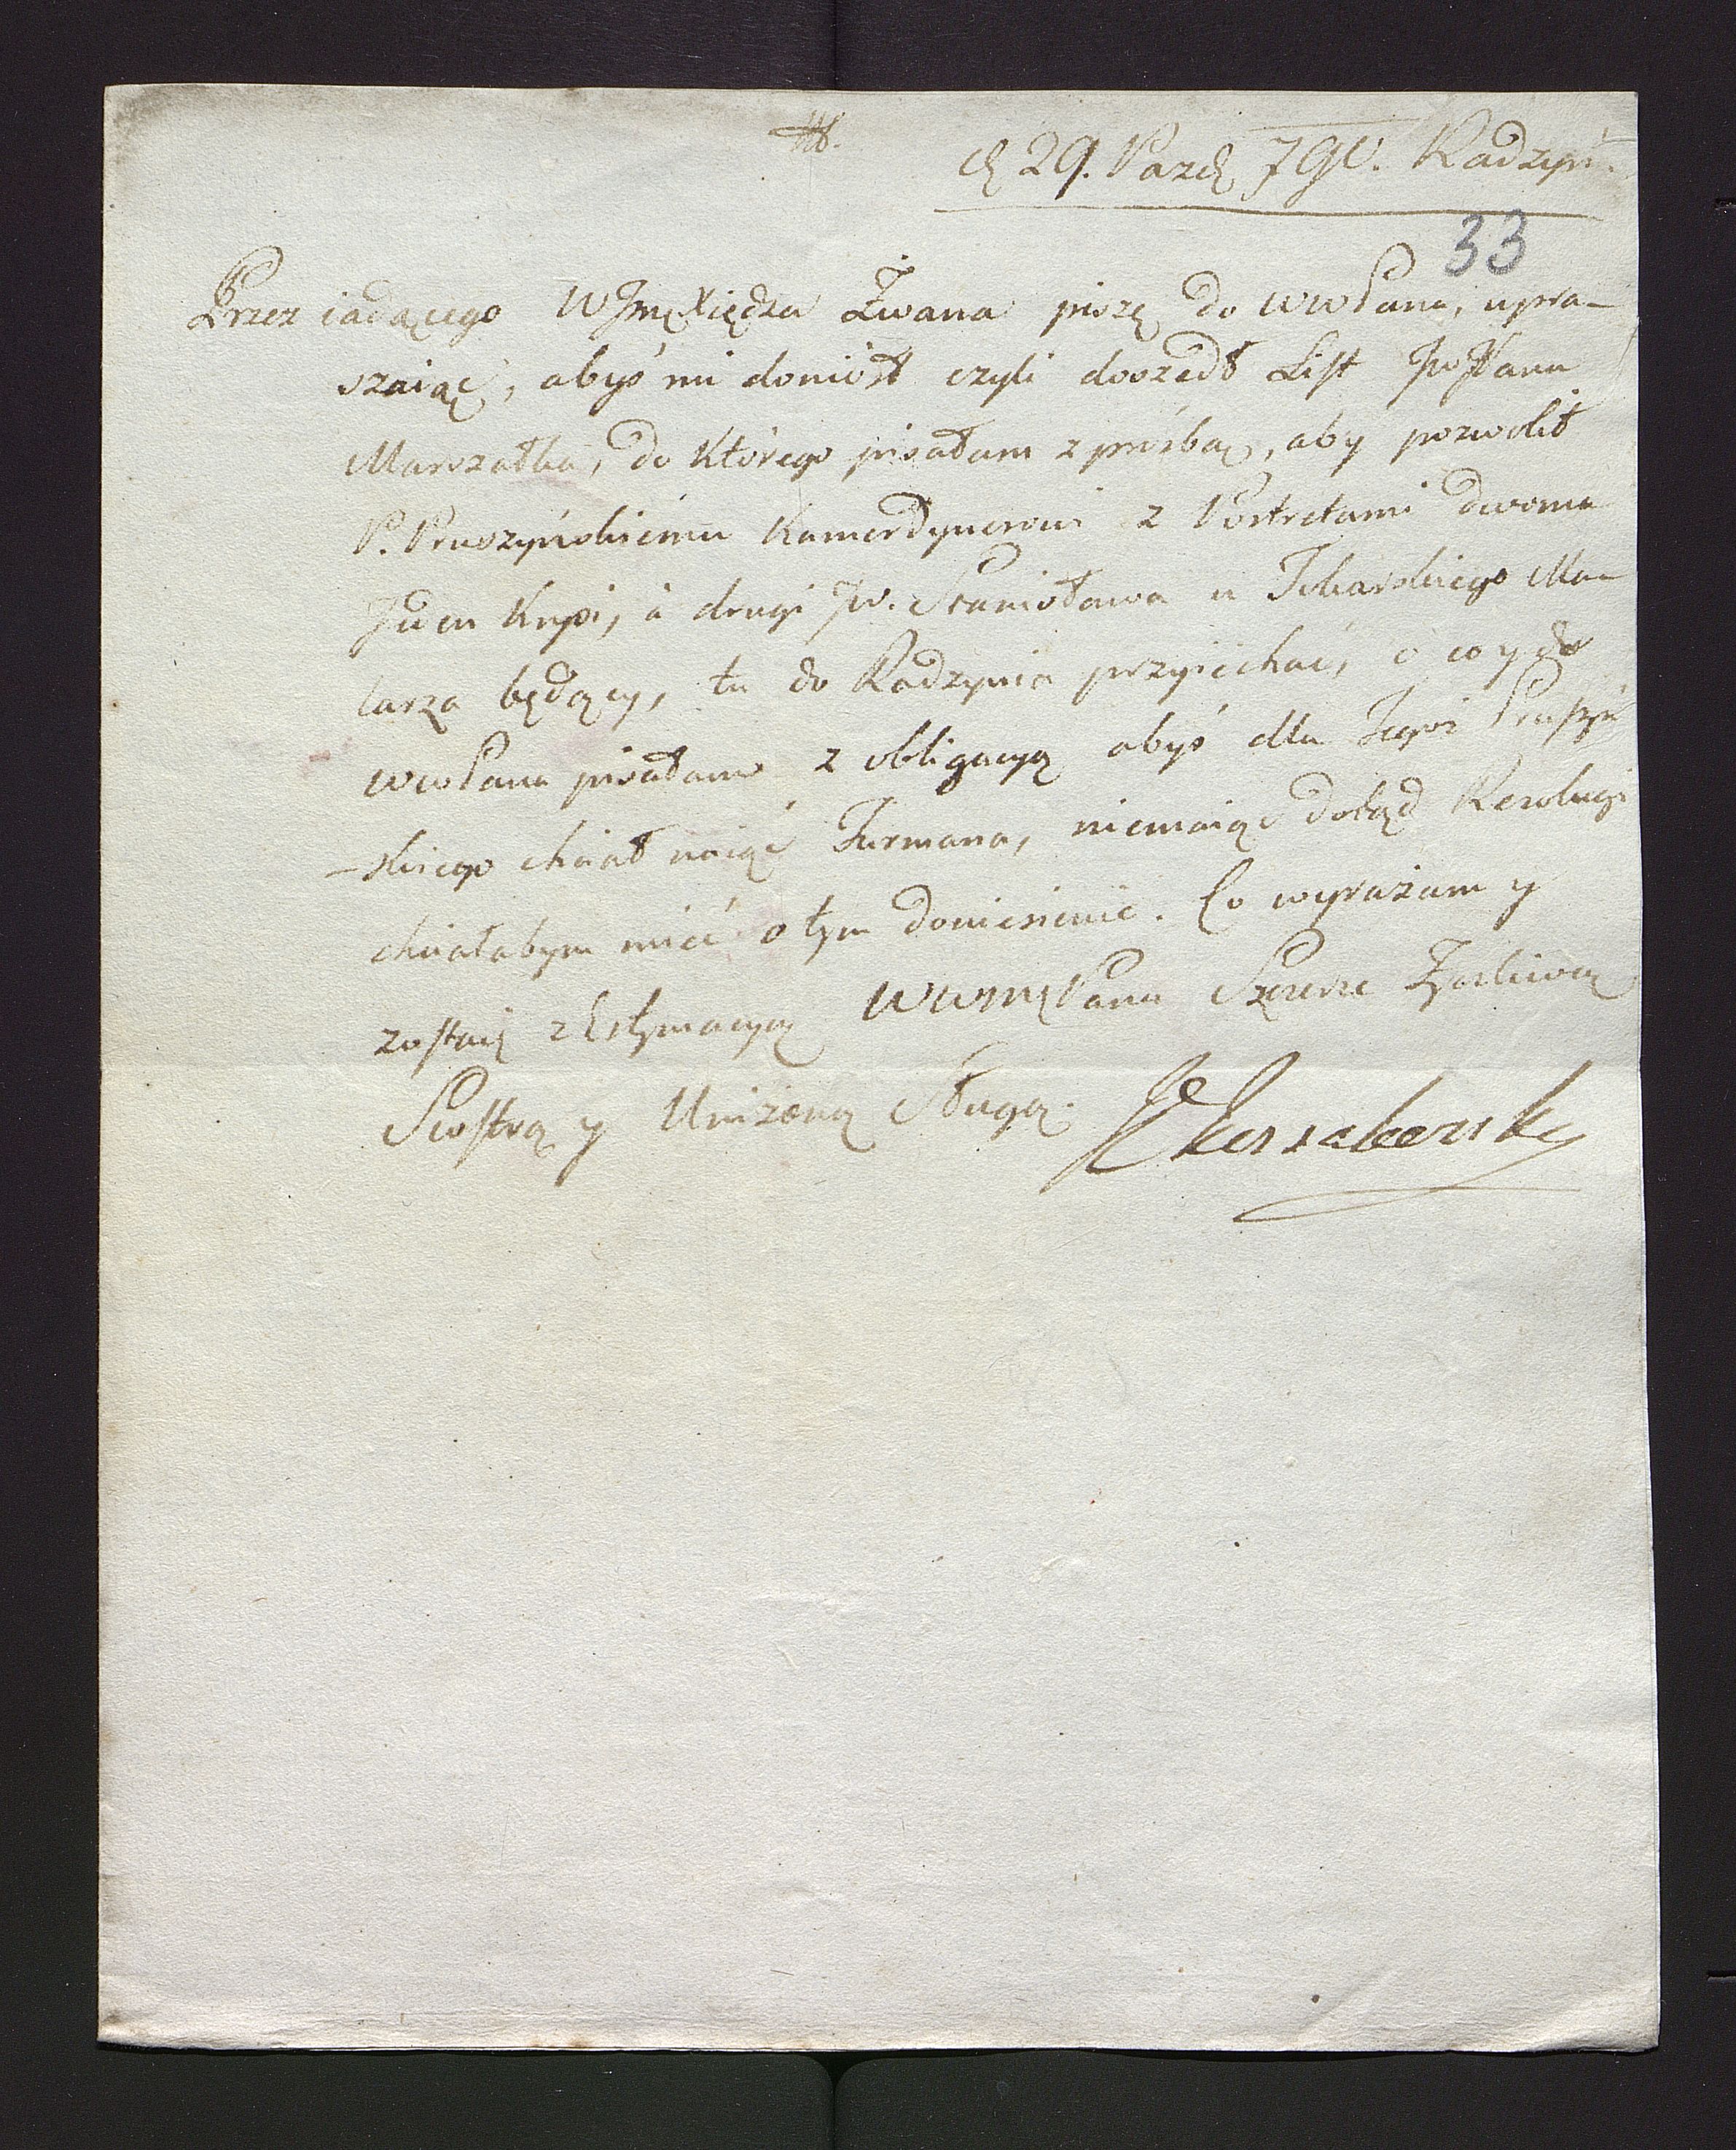 d 29. Pazd 790. Radzyń.
33
Przez iadącego WJmę Xiędza Iwana piszę do WWPana, upra-
szaiąc, abyś mi doniósł czyli doszedł List JWPana
Marszałka, do którego pisałam z prośbą, aby pozwolił
P. Pruszyńskiemu Kamerdynerowi z Portretami dwoma
Jeden Kupi, à drugi JW. Stanisława u Malarza
larza będący, tu do Radzynia przyiechać, o co y do
WWPana pisałam z obligacyą abyś dla Tegoż Pruszyń
-skiego chciał naiąć Furmana, niemaiąc dotąd Rezolucyi
chciałabym mieć o tym doniesienie. Co wyrażam y
zostaię z Estymacyą WWMPana Szczerze Życzliwą
Siostrą y Uniżoną Sługą.